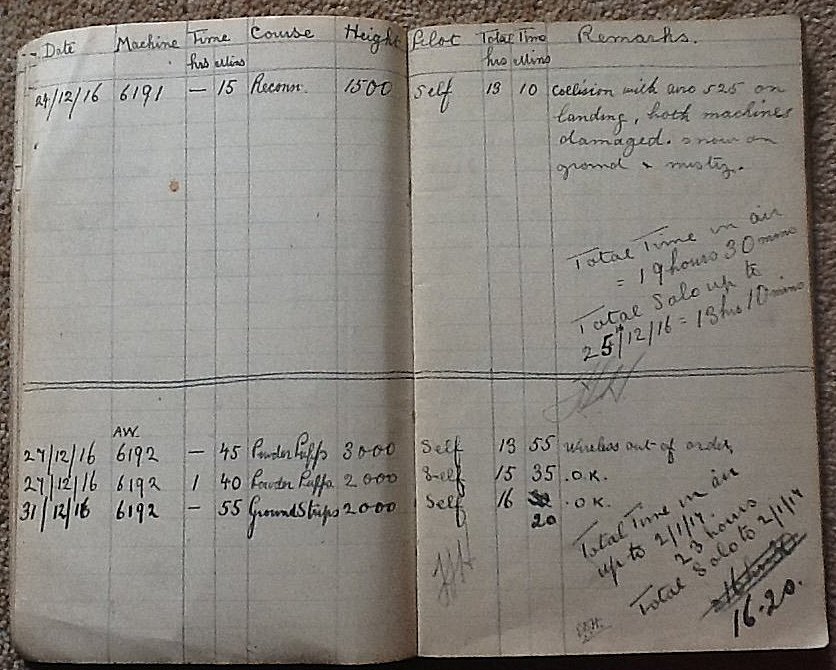 Date Machine Time Course Height Pilot Total Time Remarks.
hrs Mins hrs Mins
24/12/16 6191 — 15 Reconn. 1500 Self 13 10 Collision with avro 525 on
landing, both machines
damaged. snow on
ground & misty.
Total Time in air
= 19 hours 30 mins
Total Solo up to
25/12/16 = 13 hrs 10 mins
AW.
27/12/16 6192 — 45 Powder Puffs 3000 Self 13 55 Wireless out of order,
27/12/16 6192 1 40 Powder Puffs 2000 Self 15 35 .O.K.
31/12/16 6192 — 55 Ground Strips 2000 Self 16 .O.K.
20
Total Time in air
up to 2/1/17.
23 hours
Total Solo to 2/1/17
16-20.